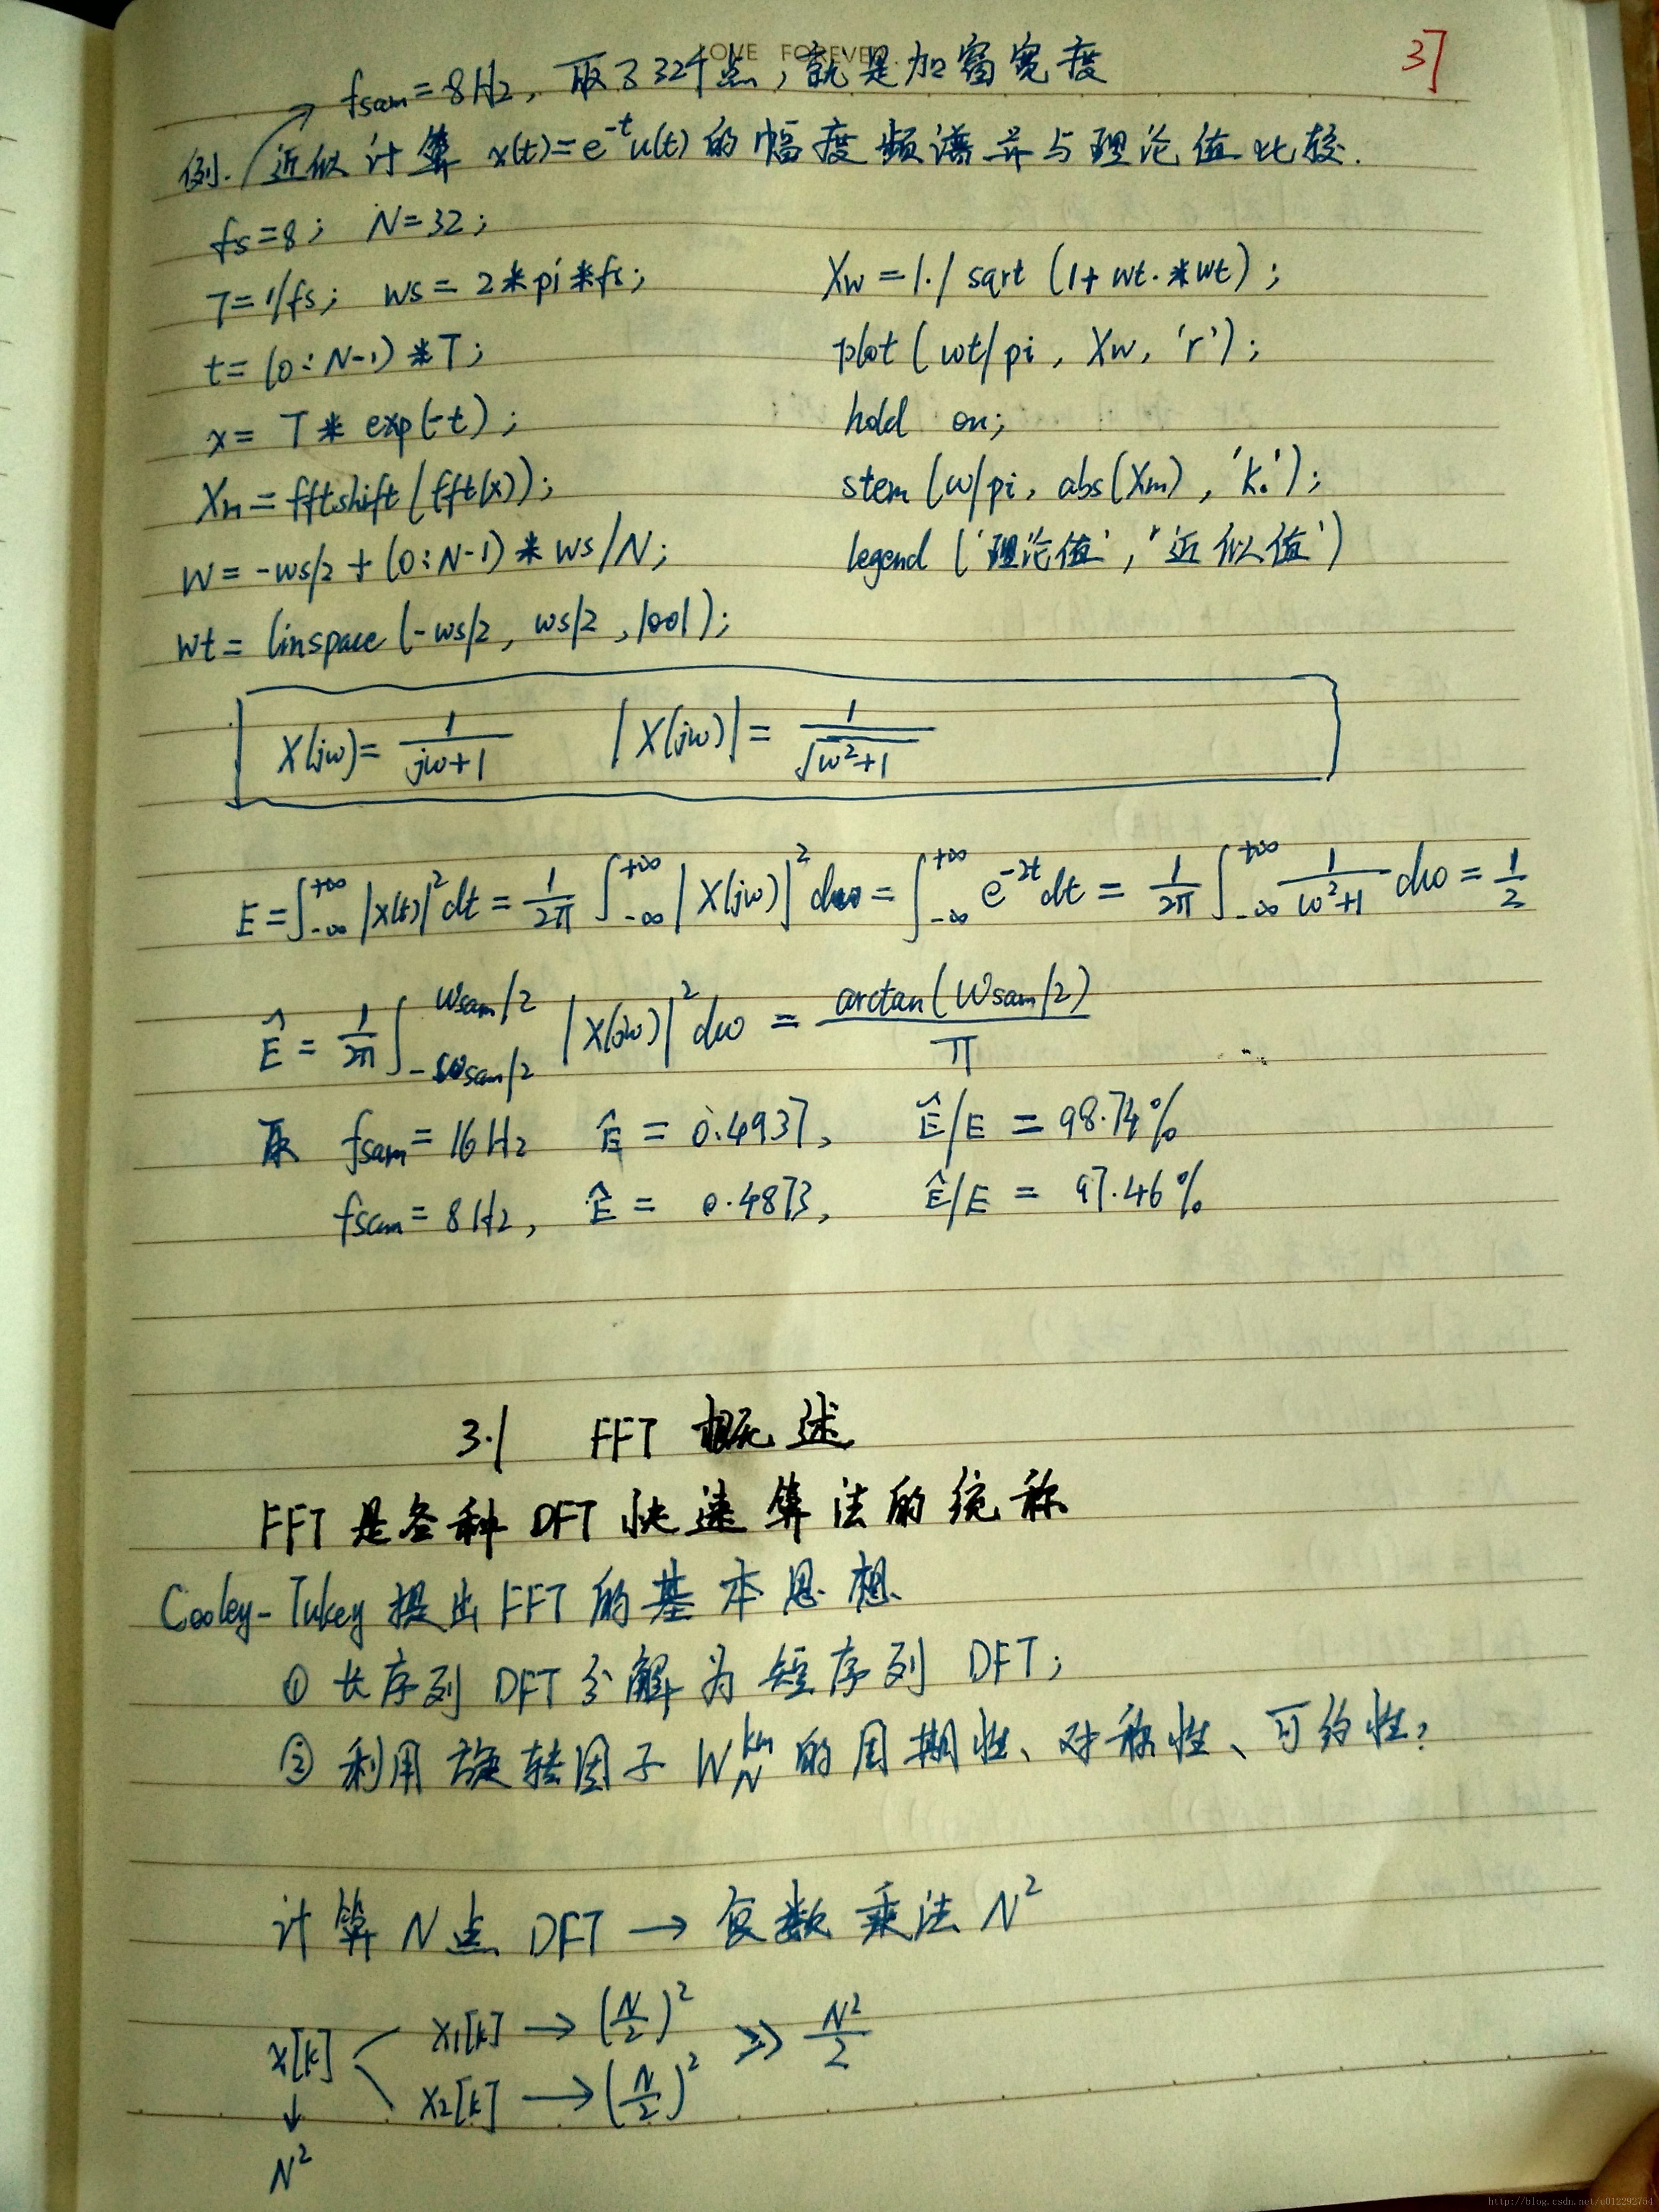 LOVE FOREVER
37
fsam=8Hz, 取了32个点,就是加窗宽度
例. 近似计算 x(t)=e^{-t}u(t) 的幅度频谱并与理论值比较.
fs=8; N=32;
T=1/fs; ws=2*pi*fs;
t=(0:N-1)*T;
x= T* exp(-t);
Xm=fftshift(fft(x));
w=-ws/2+(0:N-1)*ws/N;
wt=linspace(-ws/2, ws/2, 1001);
Xw=1./sqrt(1+wt.*wt);
plot(wt/pi, Xw, 'r');
hold on;
stem(w/pi, abs(Xm), 'k.');
legend('理论值', '近似值')
X(jω)=\frac{1}{jω+1} |X(jω)|=\frac{1}{\sqrt{ω^2+1}}
E=\int_{-∞}^{+∞}|x(t)|^2dt=\frac{1}{2π}\int_{-∞}^{+∞}|X(jω)|^2dω=\int_{-∞}^{+∞}e^{-2t}dt=\frac{1}{2π}\int_{-∞}^{+∞}\frac{1}{ω^2+1}dω=\frac{1}{2}
\hat{E}=\frac{1}{2π}\int_{-ωsam/2}^{ωsam/2}|X(jω)|^2dω=\frac{arctan(ωsam/2)}{π}
取 fsam=16Hz \hat{E}=0.4937, \hat{E}/E=98.74%
fsam=8Hz, \hat{E}=0.4873, \hat{E}/E=97.46%
3.1 FFT 概述
FFT是各种DFT快速算法的统称
Cooley-Tukey提出FFT的基本思想
① 长序列DFT分解为短序列DFT;
② 利用旋转因子 W_N^{km} 的周期性、对称性、可约性;
计算N点DFT → 复数乘法 N^2
x[k] x1[k] → (\frac{N}{2})^2 >> \frac{N^2}{2}
x2[k] → (\frac{N}{2})^2
↓
N^2
http://blog.csdn.net/u012292754